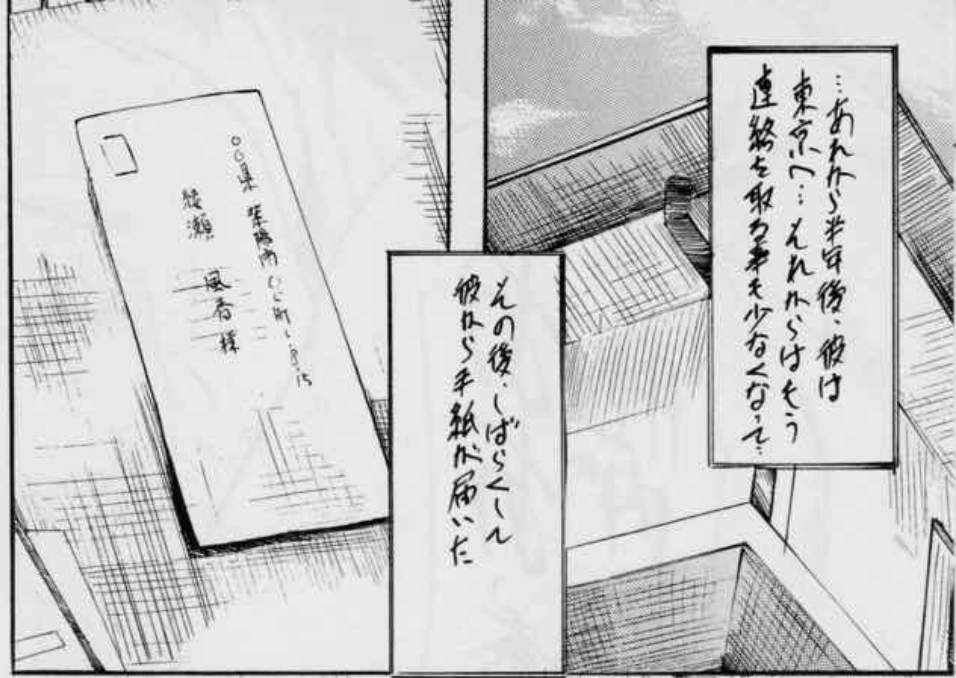 …あれから半年後、彼は
東京へ…それからはもう
連絡を取る事も少なくなって…
その後、しばらくして
彼から手紙が届いた
○○県
綾瀬 風香様